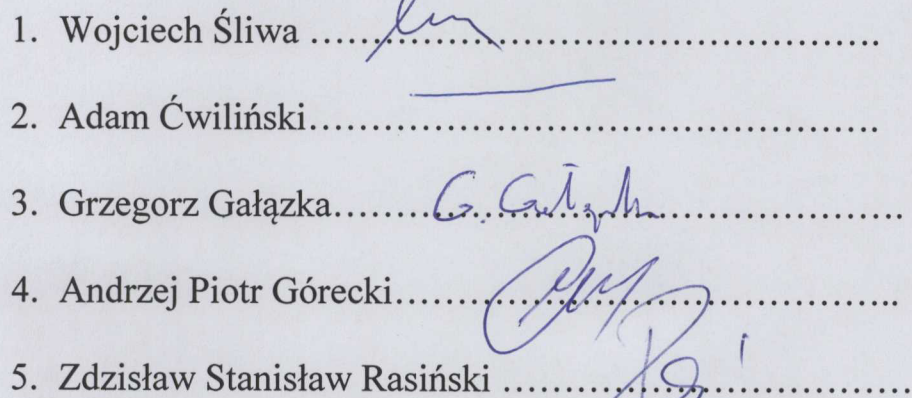 1. Wojciech Śliwa ..................................................
2. Adam Ćwiliński..................................................
3. Grzegorz Gałązka........G. Gałązka........................
4. Andrzej Piotr Górecki............................................
5. Zdzisław Stanisław Rasiński ....................................